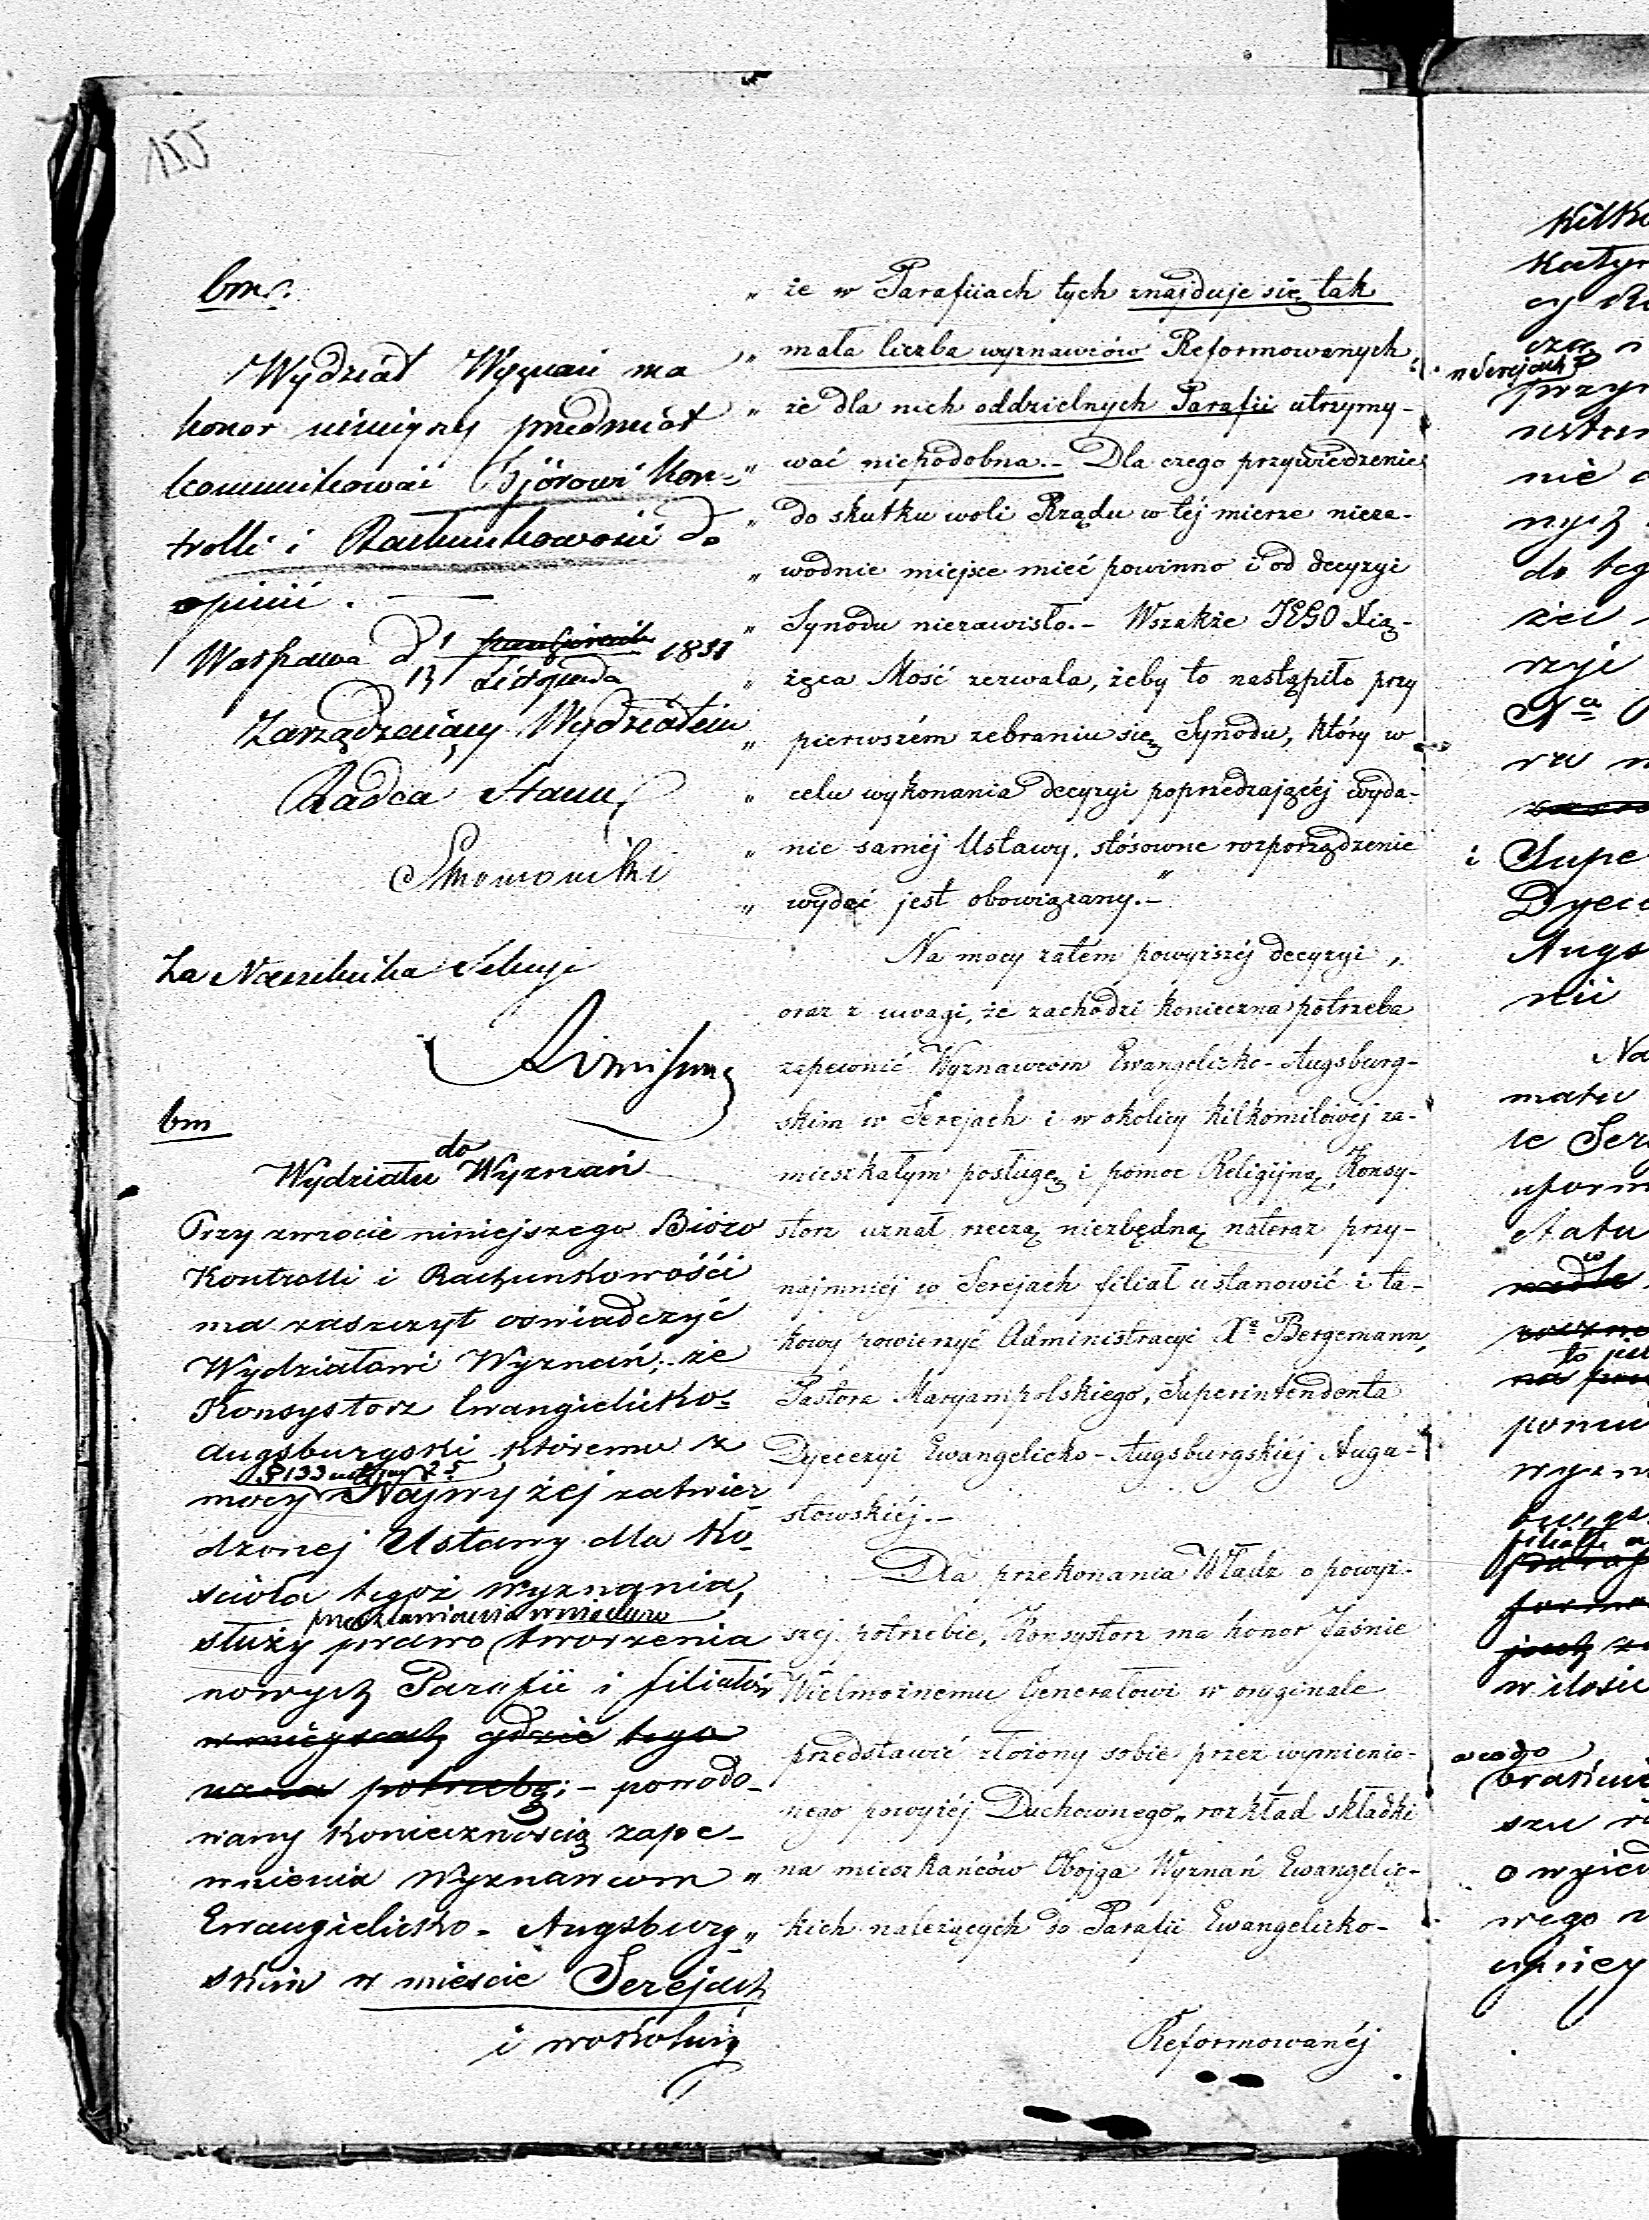 155
bm.
Wydział Wyznań ma
honor niniejszy przedmiot
kommunikować Bjórowi Kon-
trolli i Rachunkowości do
opinii. —
Warszawa d 1/13 Listopada 1851
Zarządzaiący Wydziałem
Radca Stanu
Za Naczelnika Sekcyi
bm
do
Wydziału Wyznań
Przy zwrocie niniejszego Bióro
Kontrolli i Rachunkowości
ma zaszczyt oswiadczyć
Wydziałowi Wyznań, że
Konsystorz Ewangielicko-
Augsburgski któremu z
§ 133 ustęp 2 5
mocy Najwyżej zatwier-
dzonej Ustawy dla Ko-
scioła tegoż wyznania,
przedstawiania wniosków
służy prawo tworzenia
nowych Parafii i filiałów
w miejscach gdzie tego
uzna potrzebę; – powodo-
wany koniecznoscią zape-
wnienia Wyznawcom
Ewangielicko-Augsburg-
skim w miescie Serejach
i wokolicy
„ że w Parafiiach tych znajduje się tak
„ mała liczba wyznawców Reformowanych,
„ że dla nich oddzielnych Parafii utrzymy-
„ wać niepodobna.– Dla czego przywiedzenie
„ do skutku woli Rządu w tej mierze nieza-
„ wodnie miejsce mieć powinno i od decyzyi
„ Synodu niezawisło.– Wszakże JEGO Xią-
„ żęca Mość zezwala, żeby to nastąpiło przy
„ pierwszém zebraniu się Synodu, który w
„ celu wykonania decyzyi poprzedzającéj wyda-
„ nie saméj Ustawy, stósowne rozporządzenie
„ wydać jest obowiązany.–"
Na mocy zatem powyższéj decyzyi,
oraz z uwagi, że zachodzi konieczna potrzeba
zapewnić Wyznawcom Ewangelicko-Augsburg-
skim w Serejach i w okolicy kilkomilowej za-
mieszkałym posługę i pomoc Religijną, Konsy-
storz uznał rzeczą niezbędną nateraz przy-
najmniej w Serejach filiał ustanowić i ta-
kowy powierzyć Administracyi Xa Bergemann,
Pastora Maryampolskiego, Superintendenta
Dyecezyi Ewangelicko-Augsburgskiéj Augu-
stowskiéj.–
Dla przekonania Władz o powyż-
szej potrzebie, Konsystorz ma honor Jaśnie
Wielmożnemu Generałowi w oryginale
przedstawić złożony sobie przez wymienio-
nego powyżéj Duchownego „rozkład składki
„ na mieszkańców Obojga Wyznań Ewangelic-
„ kich należących do Parafii Ewangelicko-
Reformowanéj
w Serejach
nie
do teg
i Supe
Dyece
Augs
nii
Na
te Ser
w ilosci